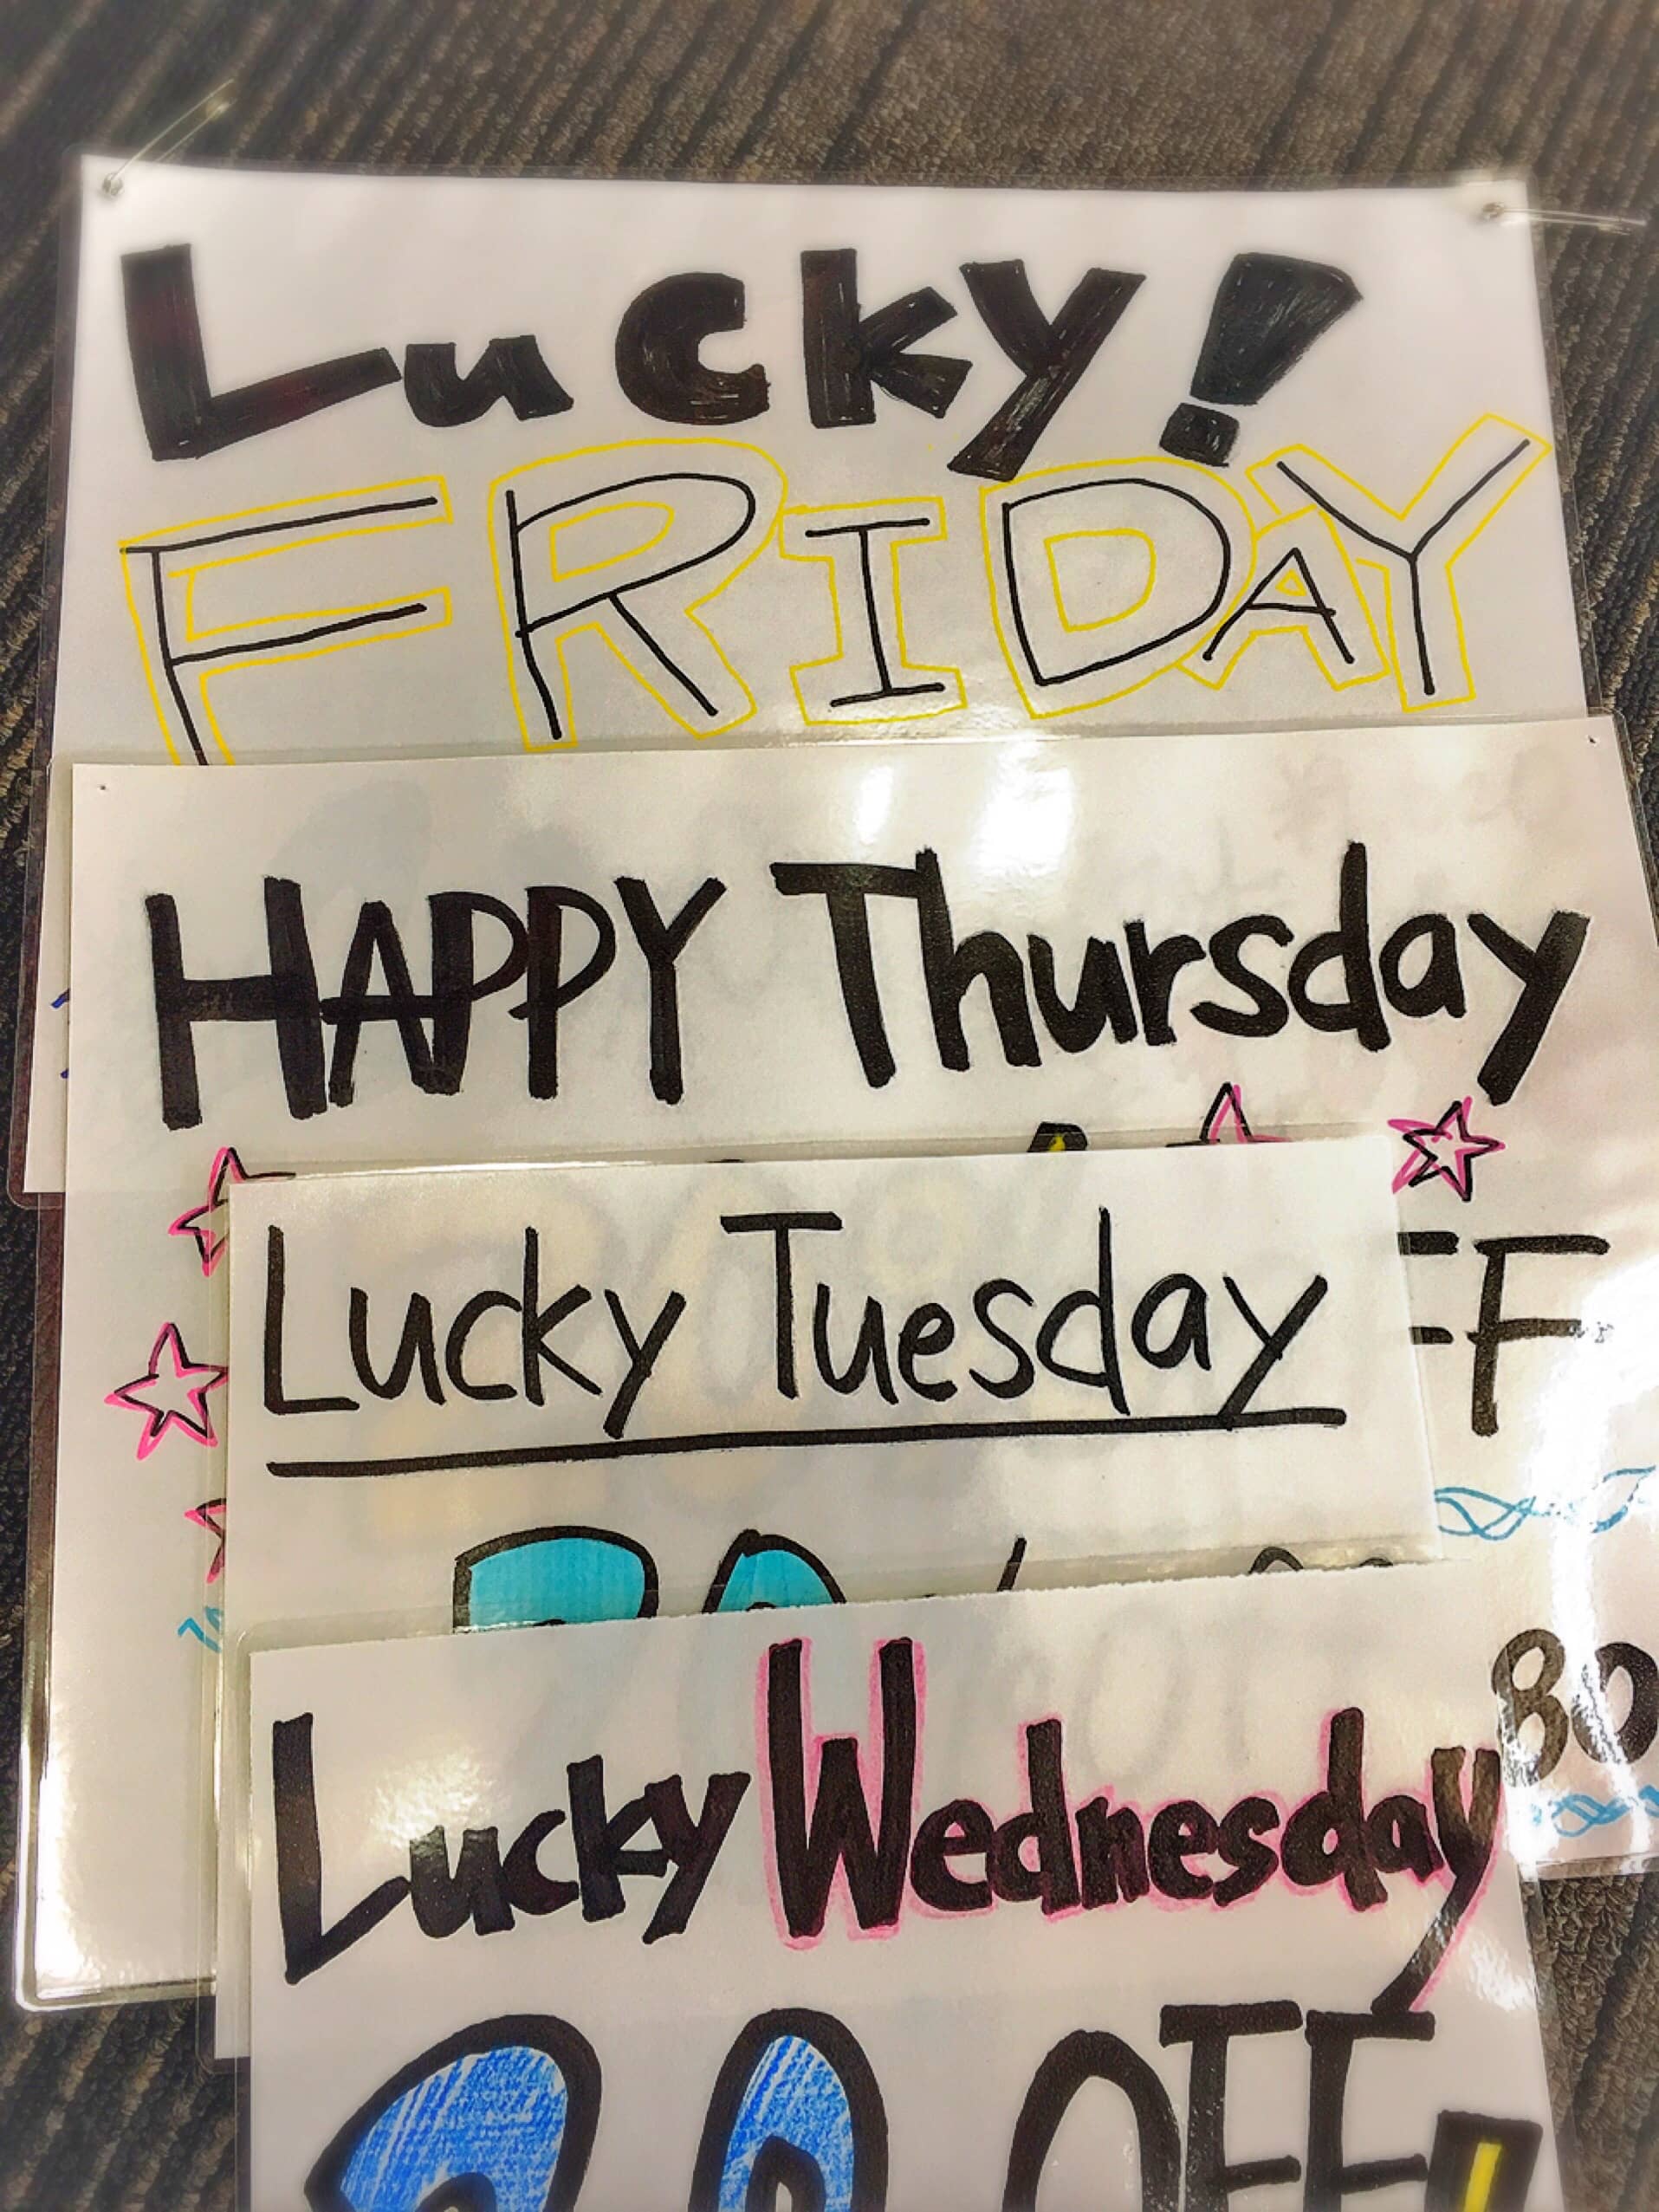 Lucky!
FRIDAY
HAPPY Thursday
Lucky Tuesday
80
Lucky Wednesday
OFF!